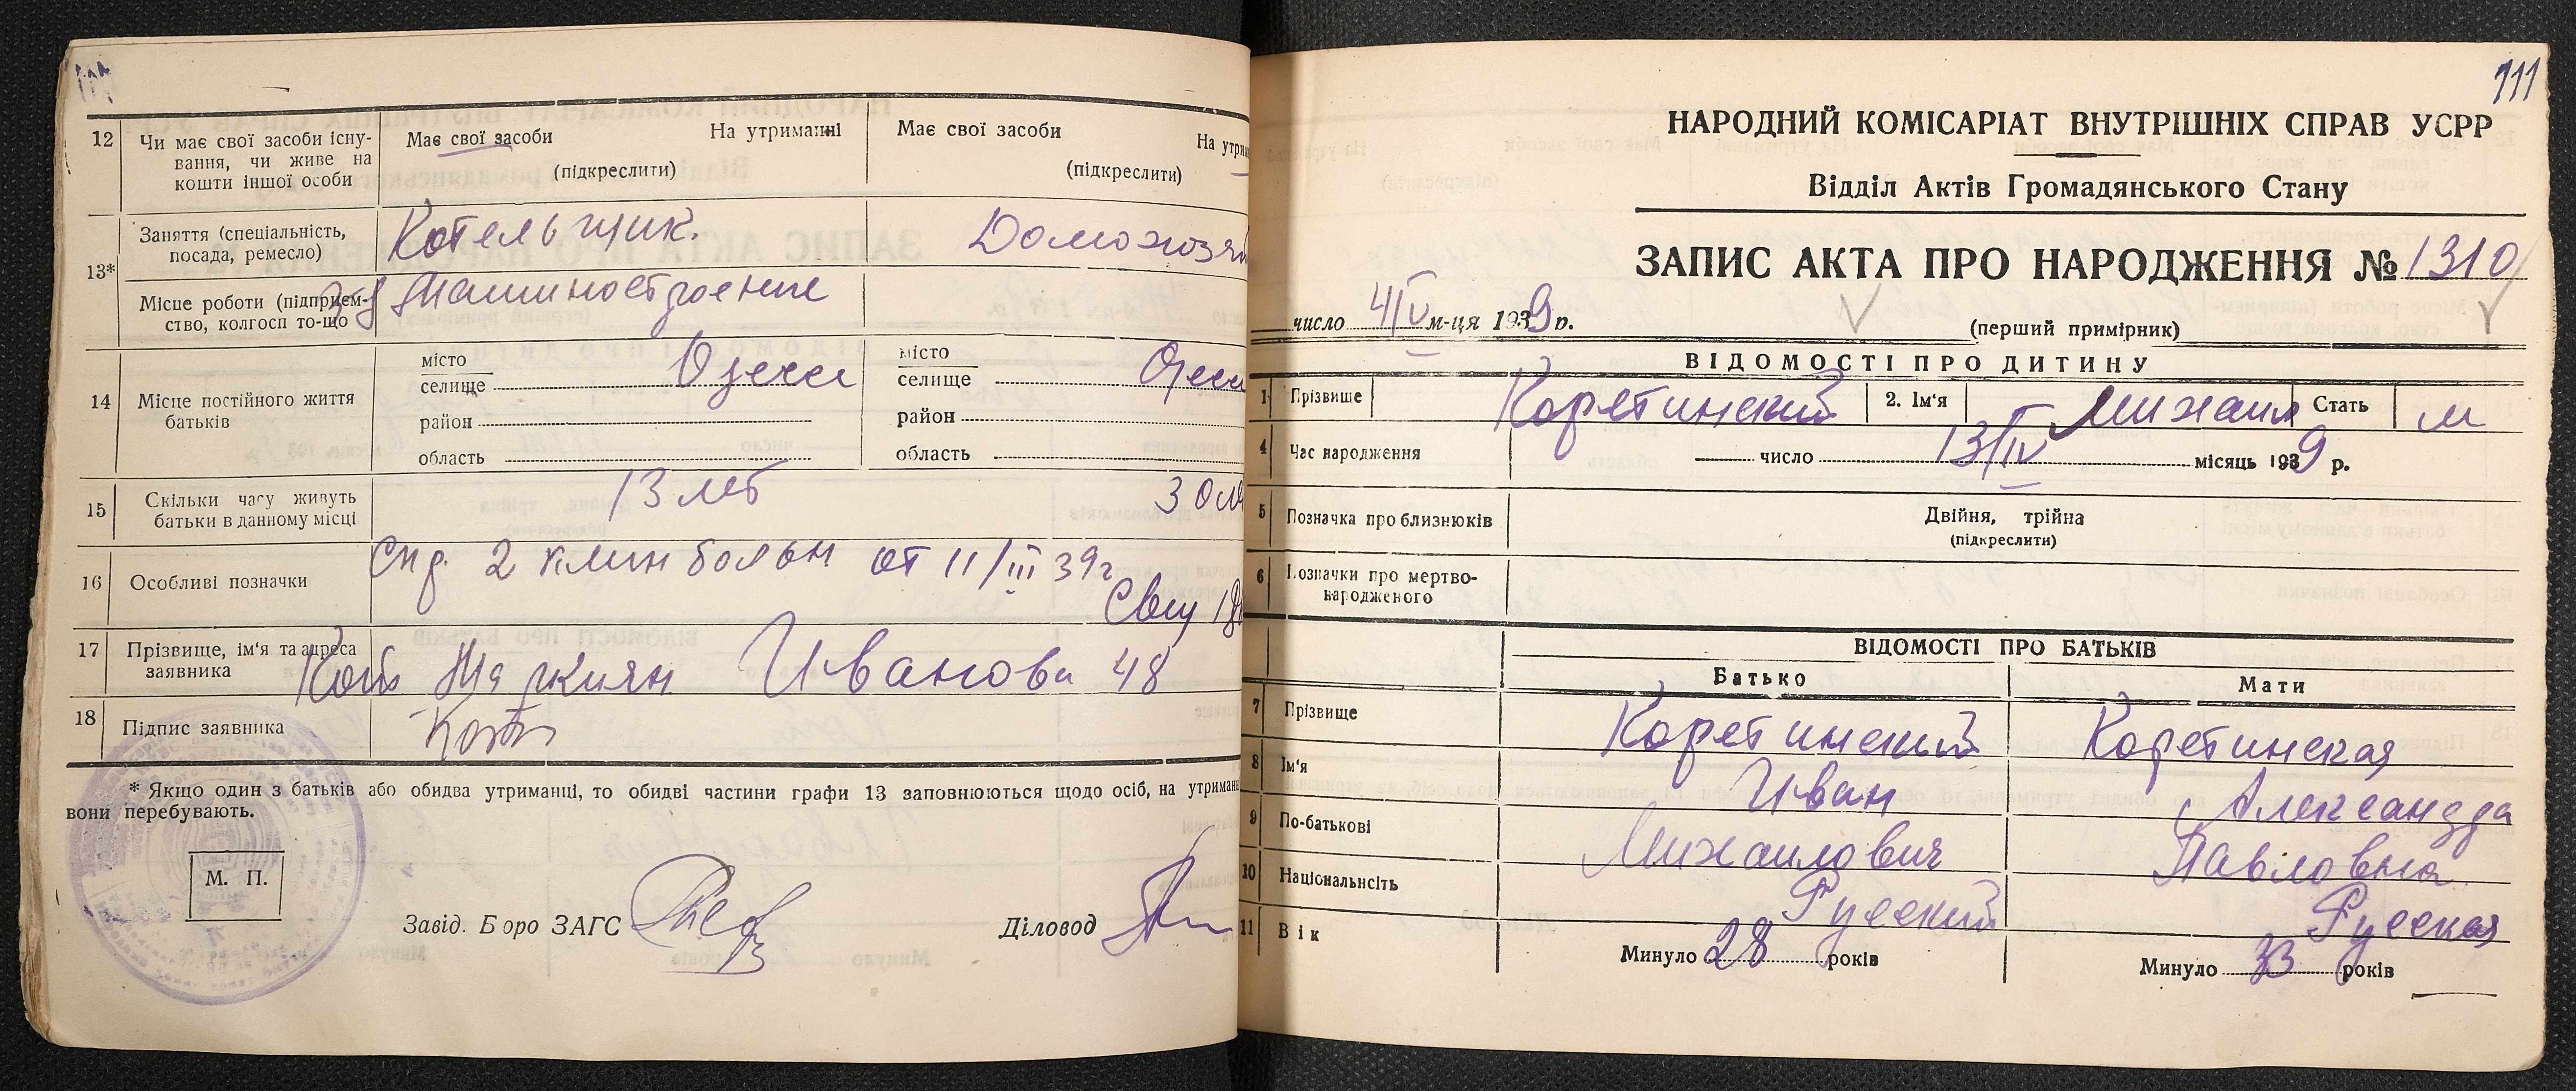 12 Чи має свої засоби існу-
вання, чи живе на
кошти іншої особи
Має свої засоби На утриманні
(підкреслити)
Має свої засоби На утрим
(підкреслити)
13* Заняття (спеціальність,
посада, ремесло)
Котельщик.
Домохозяй
Місце роботи (підприєм-
ство, колгосп то-що
з-д Машиностроение
14 Місце постійного життя
батьків
місто
селище Одесса
район
область
місто
селище Одесса
район
область
15 Скільки часу живуть
батьки в данному місці
13 лет
16 Особливі позначки
Спр. 2 клин больн от 11/III 39г
17 Прізвище, ім'я та адреса
заявника
Иванова 48
18 Підпис заявника
* Якщо один з батьків або обидва утриманці, то обидві частини графи 13 заповнюються щодо осіб, на утриман
вони перебувають.
М. П.
Завід. Бюро ЗАГС
Діловод
111
НАРОДНИЙ КОМІСАРІАТ ВНУТРІШНІХ СПРАВ УСРР
Відділ Актів Громадянського Стану
ЗАПИС АКТА ПРО НАРОДЖЕННЯ № 1310
число 4/V м-ця 1939 р.
(перший примірник)
ВІДОМОСТІ ПРО ДИТИНУ
1 Прізвище Коретинский 2. Ім'я Михаил Стать м
4 Час народження число 13/IV місяць 1939 р.
5 Позначка про близнюків Двійня, трійна
(підкреслити)
6 Позначки про мертво-
народженого
ВІДОМОСТІ ПРО БАТЬКІВ
Батько Мати
7 Прізвище Коретинский Коретинская
8 Ім'я Иван Александра
9 По-батькові Михаилович Павловна
10 Національність Русский Русская
11 Вік Минуло 28 років Минуло 33 років